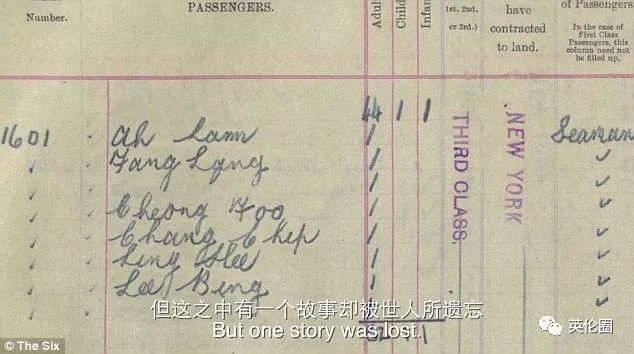 Number.
PASSENGERS.
Adul
Child
Infan
1st, 2nd,
or 3rd.)
have
contracted
to land.
of Passengers
In the case of
First Class
Passengers, this
column need not
be filled up.
44 1 1
1601 Ah Lam
Fang Lang
Cheong Foo
Chang Chip
Ling Hee
Lee Bing
THIRD CLASS.
NEW YORK
Seaman
但这之中有一个故事却被世人所遗忘
But one story was lost.
© The Six
英伦圈